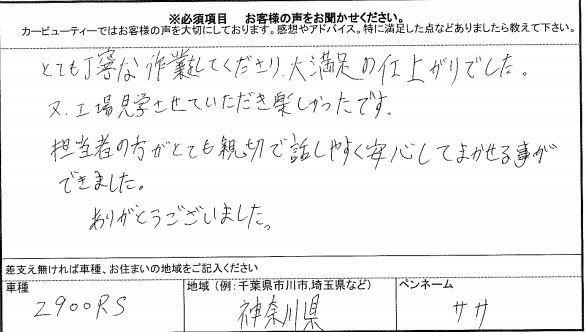 ※必須項目　お客様の声をお聞かせください。
カービューティーではお客様の声を大切にしております。感想やアドバイス。特に満足した点などありましたら教えて下さい。
とても丁寧な作業をしてくださり、大満足の仕上がりでした。
又、工場見学させていただき楽しかったです。
担当者の方がとても親切で話しやすく安心してまかせる事が
できました。
ありがとうございました。
差支え無ければ車種、お住まいの地域をご記入ください
車種
地域（例:千葉県市川市,埼玉県など）
ペンネーム
2900RS
神奈川県
ササ